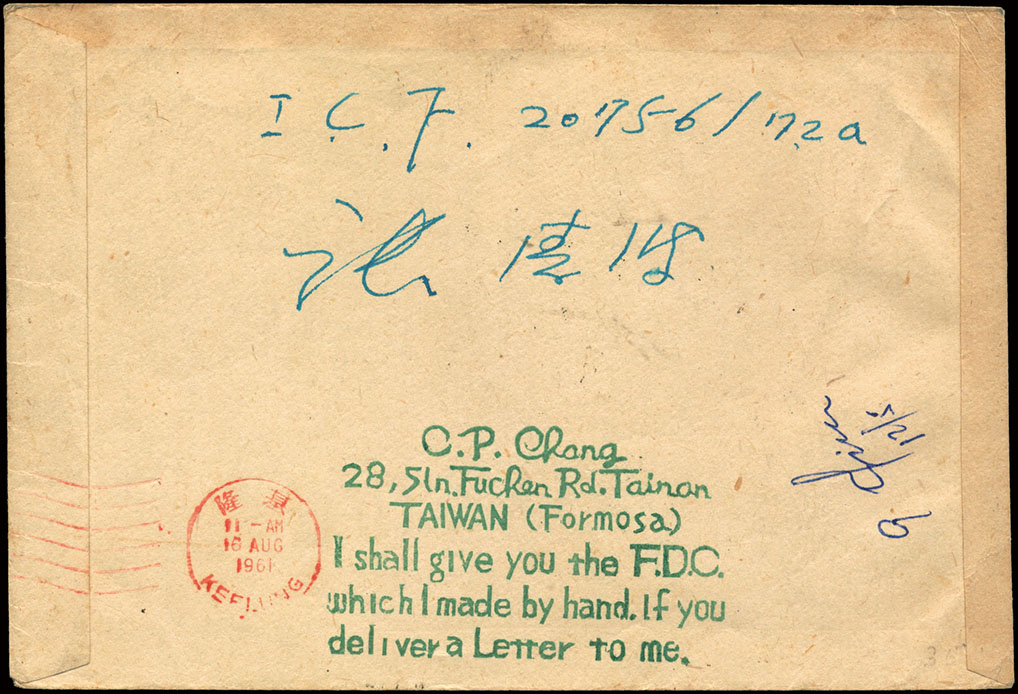 I.C.F. 20756/72a
C.P. Chang
28, 5ln. Fuchen Rd. Tainan
TAIWAN (Formosa)
I shall give you the F.D.C.
which I made by hand. If you
deliver a Letter to me.
隆基
11-AM
16 AUG
1961
KEELUNG